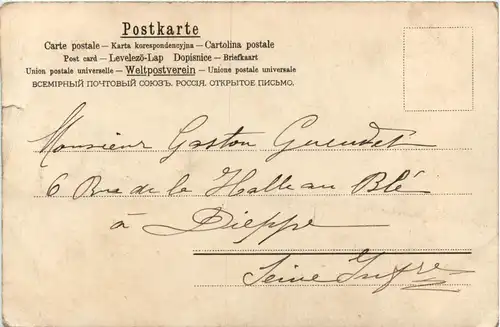 Postkarte
Carte postale – Karta korespondencyjna – Cartolina postale
Post card – Levelező-Lap Dopisnice – Briefkaart
Union postale universelle – Weltpostverein – Unione postale universale
ВСЕМІРНЫЙ ПОЧТОВЫЙ СОЮЗЪ. РОССІЯ. ОТКРЫТОЕ ПИСЬМО.
Monsieur Gaston
6 Rue de la Halle au Blé
à Dieppe
Seine Infre